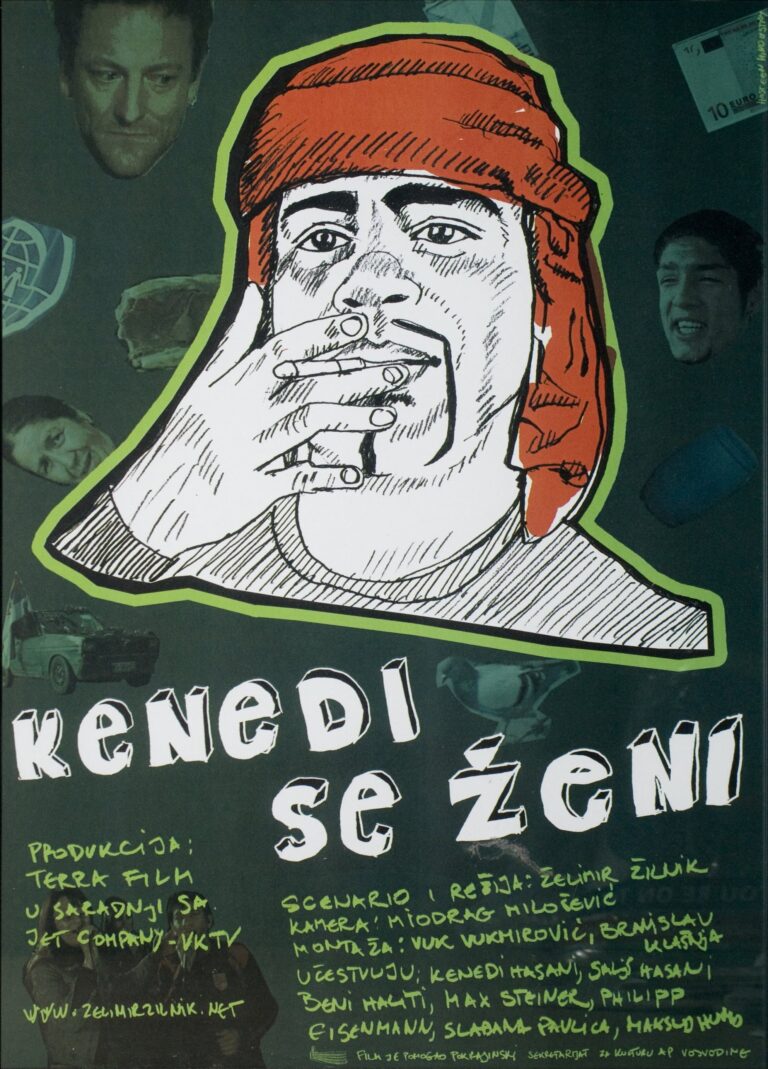 10 EURO
KENEDI
SE ŽENI
PRODUKCIJA:
TERRA FILM
U SARADNJI SA
JET COMPANY-VKTV
WWW.ZELIMIRZILNIK.NET
SCENARIO I REŽIJA: ŽELIMIR ŽILNIK
KAMERA: MIODRAG MILOŠEVIĆ
MONTAŽA: VUK VUKMIROVIĆ, BRANISLAV
KLAŠNJA
UČESTVUJU: KENEDI HASANI, HASANI
BENI HALITI, MAX STEINER, PHILIPP
EISENMANN, SLAĐANA PAVLICA,
FILM JE POMOGAO POKRAJINSKI SEKRETARIJAT ZA KULTURU AP VOJVODINE